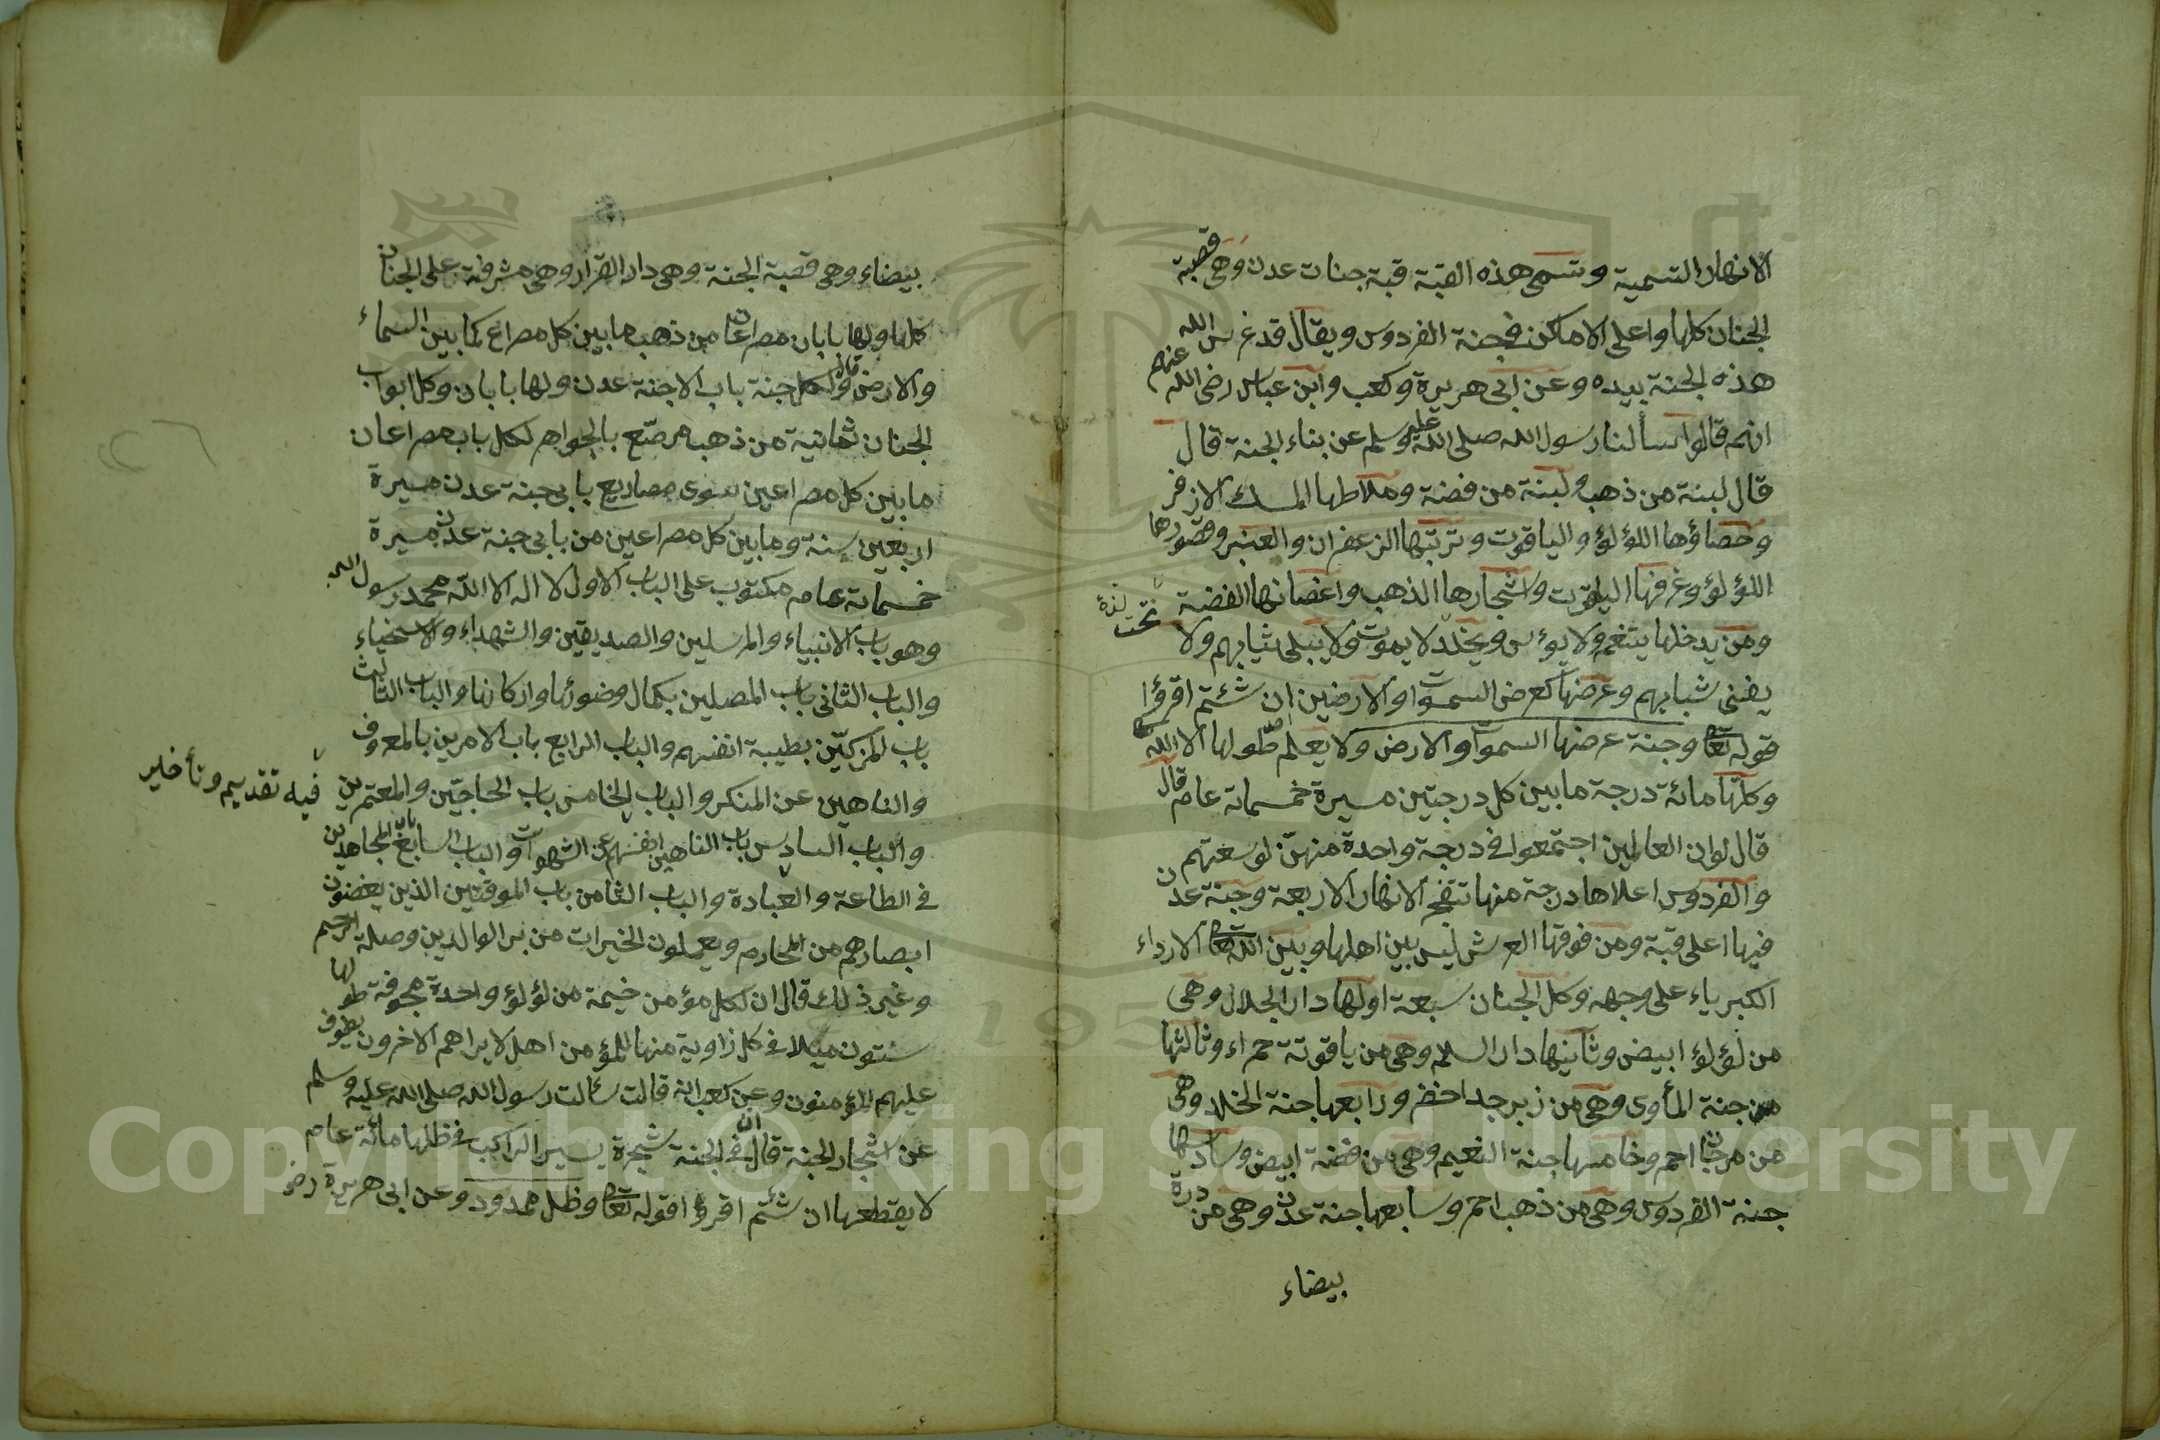 الانهار التسمية وتسمى هذه القبة قبة جنات عدن وهى قصبة
الجنان كلها واعلى الاماكن فى جنة الفردوس ويقال قد غرس الله
هذه الجنة بيده وعن ابى هريرة وكعب وابن عباس رضى الله عنهم
انهم قالوا سألنا رسول الله صلى الله عليه وسلم عن بناء الجنة قال
قال لبنة من ذهب ولبنة من فضة وملاطها المسك الازفر
وحصاؤها اللؤلؤ والياقوت وتربتها الزعفران والعنبر وقصورها
اللؤلؤ وغرفها الياقوت واشجارها الذهب واغصانها الفضة
ومن يدخلها يتنعم ولا يوءس ويخلد لا يموت ولا يبلى ثيابهم ولا
يفنى شبابهم وعرضها كعرض السموات والارضين ان شئتم اقرؤا
قوله تعا وجنة عرضها السموات والارض ولا يعلم طولها الا الله
وكلها مائة درجة ما بين كل درجتين مسيرة خمسمائة عام قال
قال لو ان العالمين اجتمعوا فى درجة واحدة منهن لوسعتهم
والفردوس اعلاها درجة منها تتفجر الانهار الاربعة وجنة عدن
فيها اعلى قبة ومن فوقها العرش ليس بين اهلها وبين الله تعا الا رداء
الكبرياء على وجهه وكل الجنان سبعة اولها دار الجلال وهى
من لؤلؤ ابيض وثانيها دار السلام وهى من ياقوتة حمراء وثالثها
جنة المأوى وهى من زبرجد اخضر ورابعها جنة الخلد وهى
من مرجان احمر وخامسها جنة النعيم وهى من فضة ابيض وسادسها
جنة الفردوس وهى من ذهب احمر وسابعها جنة عدن وهى من درة
بيضاء
بيضاء وهى قصبة الجنة وهى دار القرار وهى مشرفة على الجنان
كلها ولها بابان مصراعان من ذهب ما بين كل مصراع كما بين السماء
والارض ولكل جنة باب الا جنة عدن ولها بابان وكل ابواب
الجنان ثمانية من ذهب مرصع بالجواهر لكل باب مصراعان
ما بين كل مصراعين سوى مصاريع بابى جنة عدن مسيرة
اربعين سنة وما بين كل مصراعين من بابى جنة عدن مسيرة
خمسمائة عام مكتوب على الباب الاول لا اله الا الله محمد رسول الله
وهو باب الانبياء والمرسلين والصديقين والشهداء والاسخياء
والباب الثانى باب المصلين بكمال وضوئها واركانها والباب الثالث
باب المزكين بطيبة انفسهم والباب الرابع باب الامرين بالمعروف
والناهين عن المنكر والباب الخامس باب الحاجين والمعتمرين
فيه تقديم وتأخير
والباب السادس باب الناهين انفسهم عن الشهوات والباب السابع باب المجاهدين
فى الطاعة والعبادة والباب الثامن باب الموقنين الذين يغضون
ابصارهم من المحارم ويعملون الخيرات من بر الوالدين وصلة الرحم
وغير ذلك قال ان لكل مؤمن خيمة من لؤلؤ واحدة مجوفة طولها
ستون ميلا فى كل زاوية منها للمؤمن اهل لا يراهم الاخرون يطوف
عليهم المؤمنون وعن كعب انه قالت سئالت رسول الله صلى الله عليه وسلم
عن اشجار الجنة قال ان فى الجنة شجرة يسير الراكب فى ظلها مائة عام
لا يقطعها ان شئتم اقرؤا قوله تعا وظل ممدود وعن ابى هريرة رض